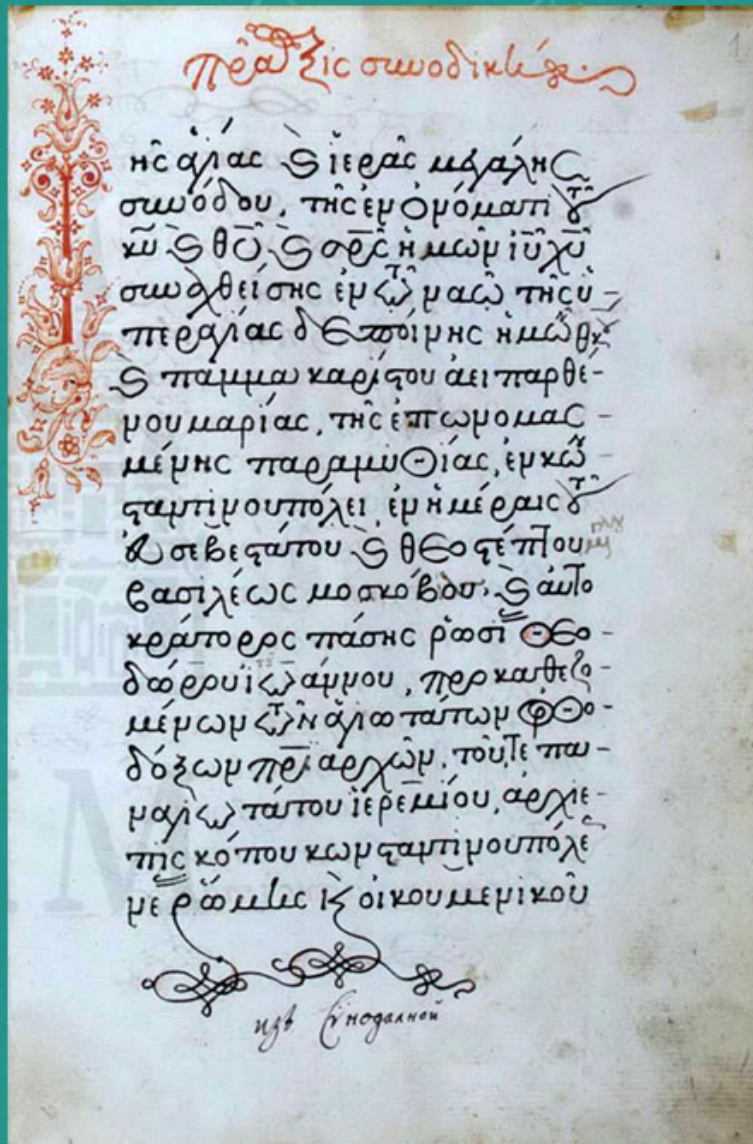 πρᾶξις συνοδική
1
ῆς ἁγίας καὶ ἱερᾶς μεγάλης
συνόδου, τῆς ἐν ὀνόματι τοῦ
κυ καὶ θυ καὶ σρς ἡμῶν ιυ χυ
συναχθείσης ἐν τῶ ναῶ τῆς ὑ-
περαγίας δεσποίνης ἡμῶν θκου
καὶ παμμακαρίστου ἀειπαρθέ-
νου μαρίας, τῆς ἐπωνομασ-
μένης παραμυθίας, ἐν κων
σταντινουπόλει ἐν ἡμέραις τοῦ
εὐσεβεστάτου καὶ θεοστέπτου
βασιλέως μοσκόβου, καὶ αὐτο
κράτορος πάσης ῥωσί θεο-
δώρου ἰωάννου, προκαθεζο
μένων τῶν ἁγιωτάτων ὀρθο-
δόξων πριαρχῶν, τοῦ,τε πα-
ναγιωτάτου ἱερεμίου, ἀρχιε-
πισκόπου κωνσταντινουπόλε
νε ῥώμης καὶ οἰκουμενικοῦ
изъ Сѵнодалной